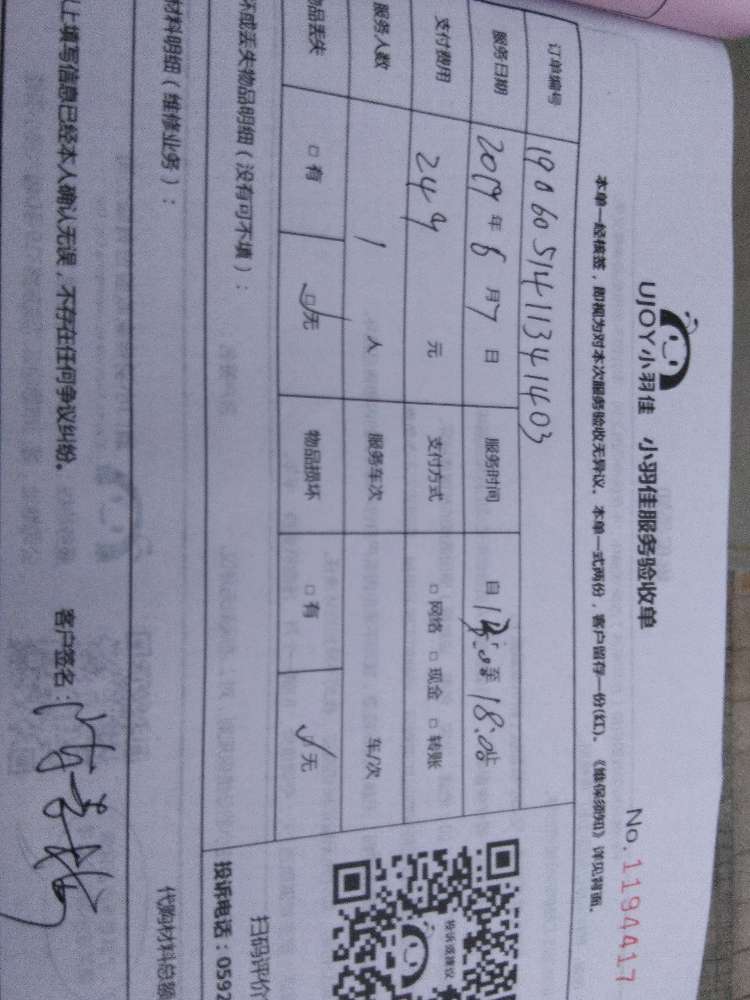 UJOY小羽佳 小羽佳服务验收单
No.1194417
本单一经核签，即视为对本次服务验收无异议。本单一式两份，客户留存一份(红)。《维保须知》详见背面。
订单编号 1906051411341403
服务日期 2019年6月7日 服务时间 自 至18:00止
支付费用 249 元 支付方式 □网络 □现金 □转账
服务人数 1 人 服务车次 车/次
物品丢失 □有 ☑无 物品损坏 □有 ☑无
坏或丢失物品明细（没有可不填）：
材料明细（维修业务）：
投诉或建议
扫码评价
投诉电话：0592
代购材料总额
以上填写信息已经本人确认无误，不存在任何争议纠纷。 客户签名：